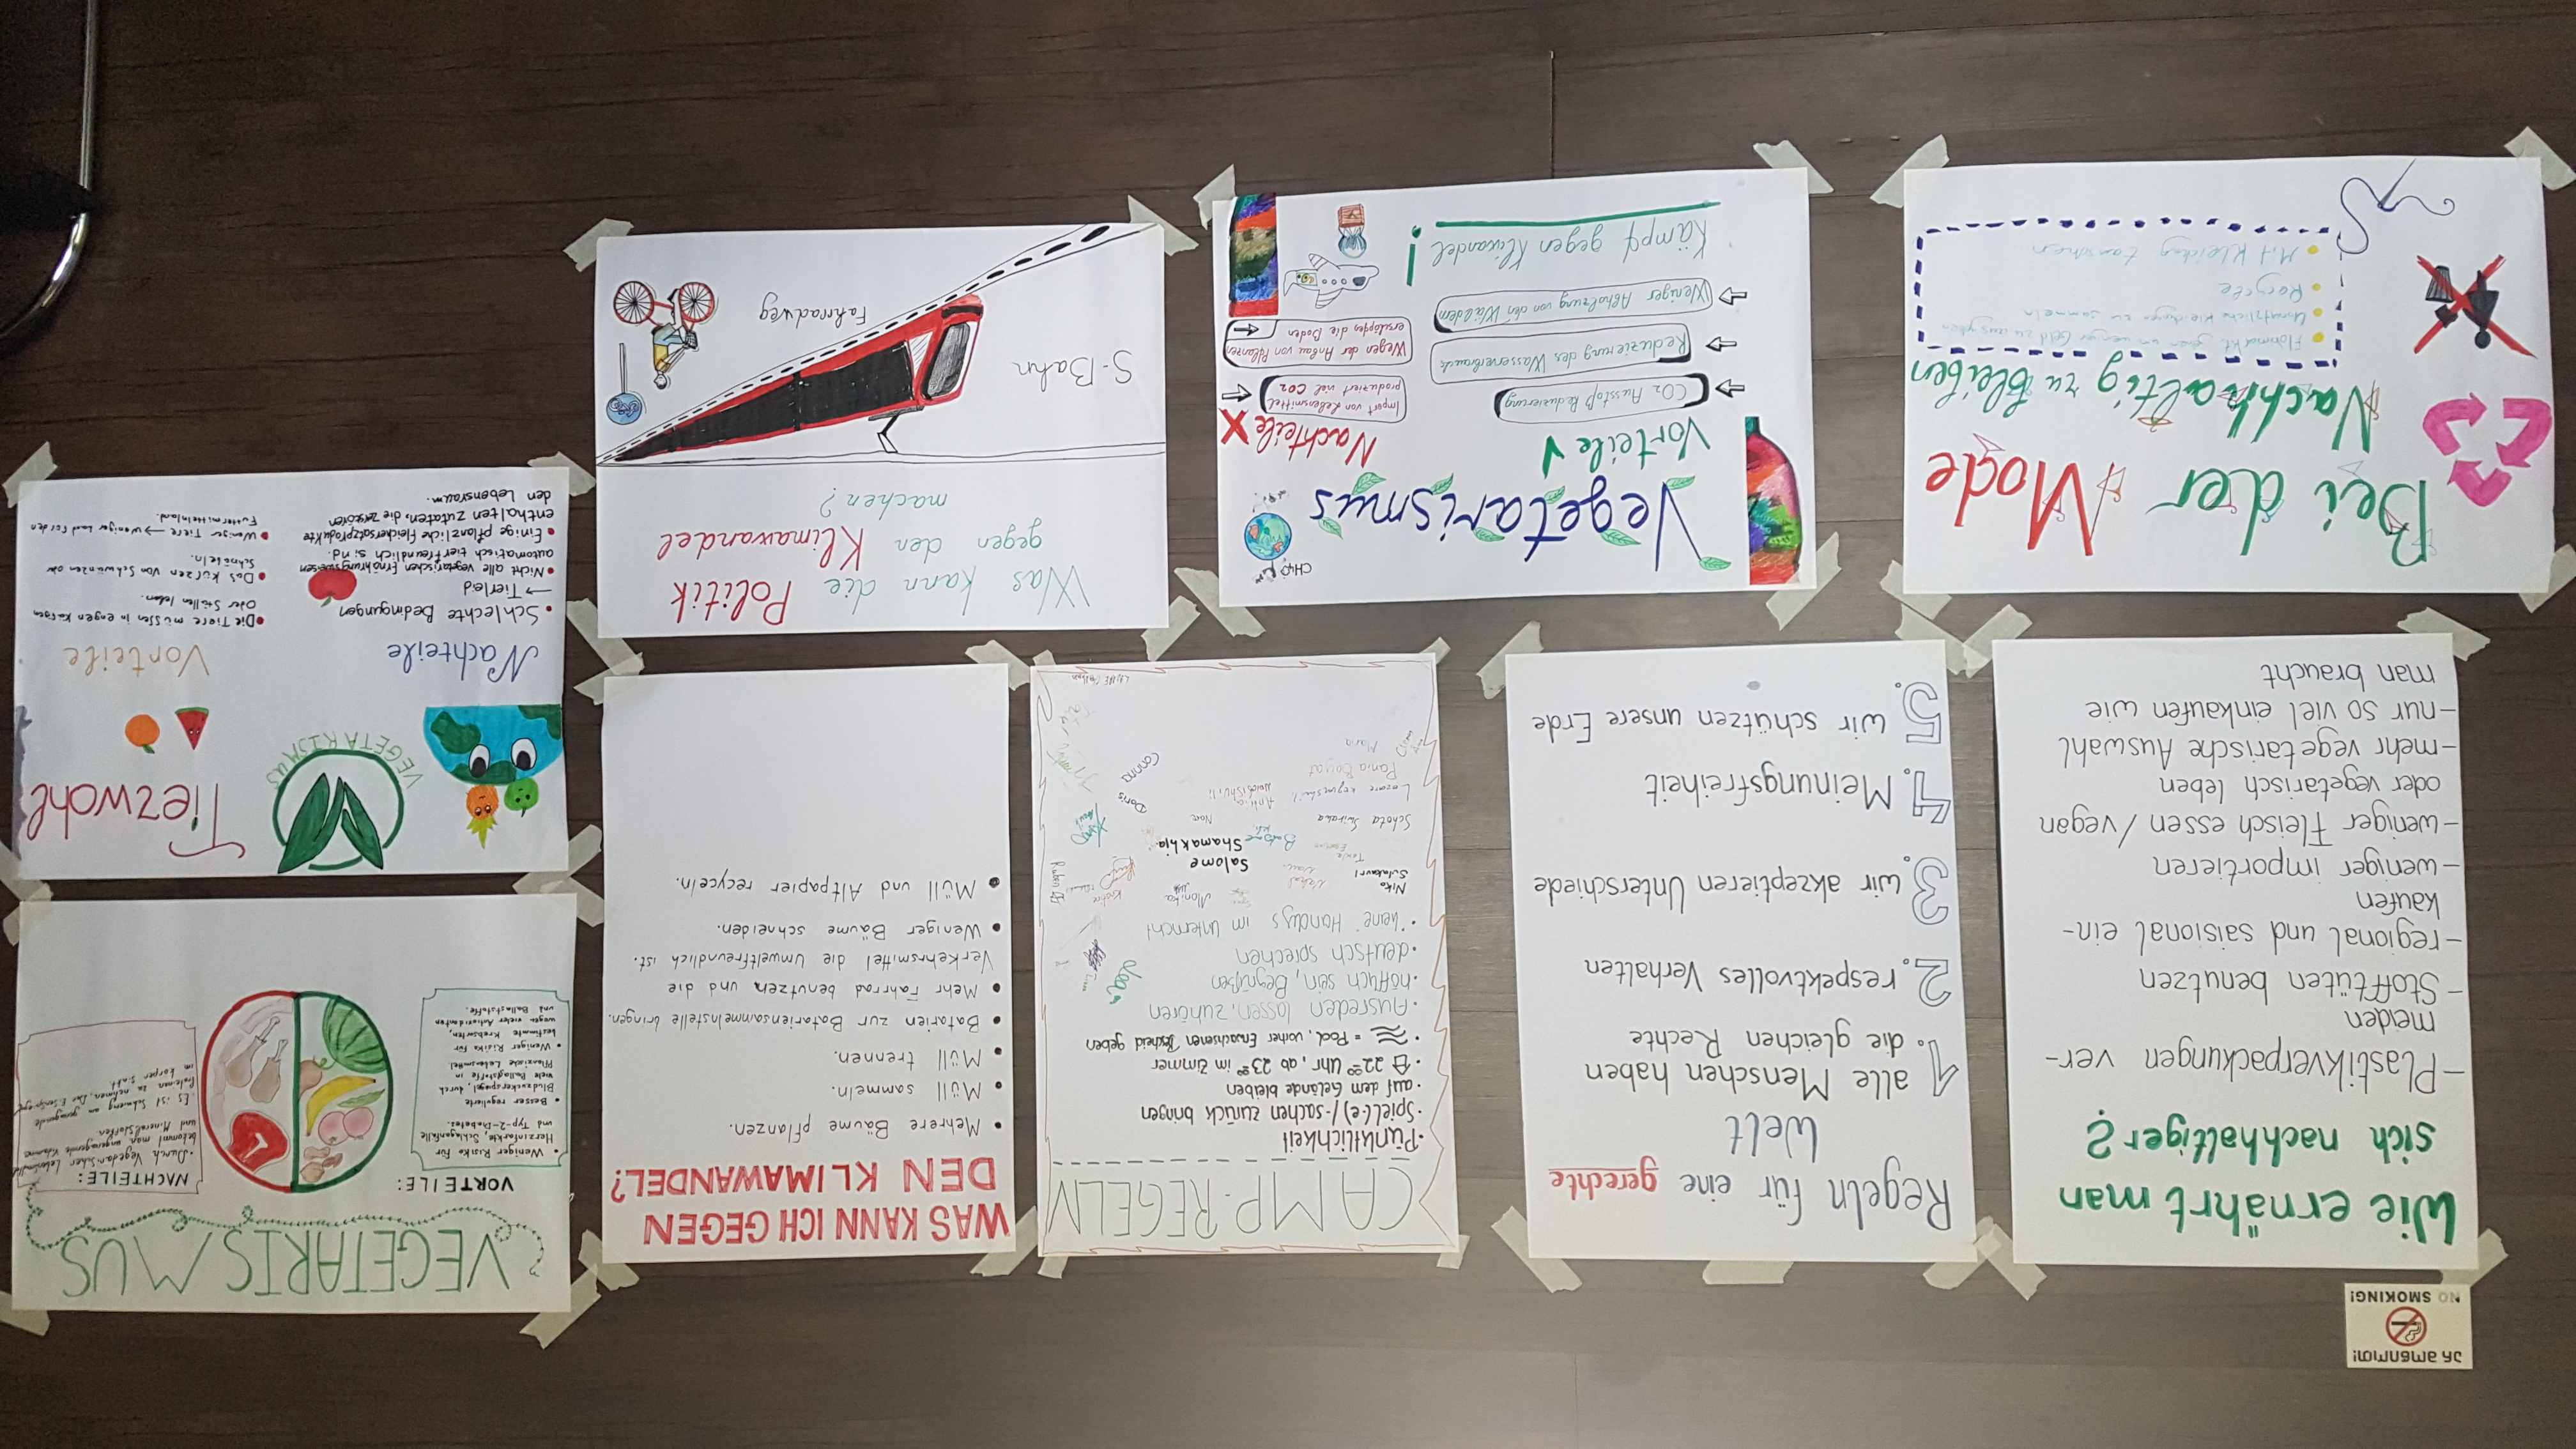 NO SMOKING!
Wie ernährt man
sich nachhaltiger?
-Plastikverpackungen ver-
meiden
-Stofftüten benutzen
-regional und saisional ein-
kaufen
-weniger importieren
-weniger Fleisch essen / vegan
oder vegetarisch leben
-mehr vegetarische Auswahl
-nur so viel einkaufen wie
man braucht
Regeln für eine gerechte
Welt
1. alle Menschen haben
die gleichen Rechte
2. respektvolles Verhalten
3. wir akzeptieren Unterschiede
4. Meinungsfreiheit
5. wir schützen unsere Erde
CAMP-REGELN
·Pünktlichkeit
·Spiel(-e)/-sachen zurück bringen
·auf dem Gelände bleiben
22⁰⁰ Uhr, ab 23⁰⁰ im Zimmer
= Pool, vorher Erwachsenen Bescheid geben
·Ausreden lassen, zuhören
·höflich sein, Begrüßen
·deutsch sprechen
·keine Handys im Unterricht
Niko
Monika
Salome
Shamakhia
Noa
Doris
Maria
WAS KANN ICH GEGEN
DEN KLIMAWANDEL?
• Mehrere Bäume pflanzen.
• Müll sammeln.
• Müll trennen.
• Batarien zur Batariensammelnstelle bringen.
• Mehr Fahrrad benutzen und die
Verkehrsmittel die Umweltfreundlich ist.
• Weniger Bäume schneiden.
• Müll und Altpapier recyceln.
VEGETARISMUS
VORTEILE:
• Weniger Risiko für
Herzinfarkte, Schlaganfälle
und Typ-2-Diabetes.
• Besser regulierte
Blutzuckerspiegel, durch
viele Ballaststoffe in
Pflanzliche Lebensmittel.
• Weniger Risiko für
bestimmte Krebsarten,
wegen vieler Antioxidantien
und Ballaststoffe.
NACHTEILE:
bekommt man ungenügende
und Mineralstoffen
im körper sinkt
Bei der Mode
Nachhaltig zu bleiben
Flohmarkt gehen um weniger Geld zu ausgeben
Unnützliche Kleidungen zu sammeln
Recycle
Mit Kleidung tauschen
Vegetarismus
CH₄
Vorteile
CO₂ Ausstoß Reduzierung
Reduzierung des Wasserverbrauch
Weniger Abholzung von den Wäldern
Kämpf gegen Kliwandel!
Nachteile
Import von Lebensmittel
produziert viel CO2
Wegen der Anbau von Pflanzen
erschöpfes die Boden
Was kann die Politik
gegen den Klimawandel
machen?
S-Bahn
Fahrradweg
Tierwohl
VEGETARISMUS
Nachteile
• Schlechte Bedingungen
→ Tierleid
• Nicht alle vegetarischen Ernährungsweisen
automatisch tierfreundlich sind.
• Einige pflanzliche Fleischersatzprodukte
enthalten zutaten, die zerstören
den Lebensraum.
Vorteile
• Die Tiere müssen in engen Käfigen
oder Ställen leben.
• Das Kürzen von Schwänzen oder
Schnäbeln.
• Weniger Tiere → weniger Land für den
Futtermittelland.